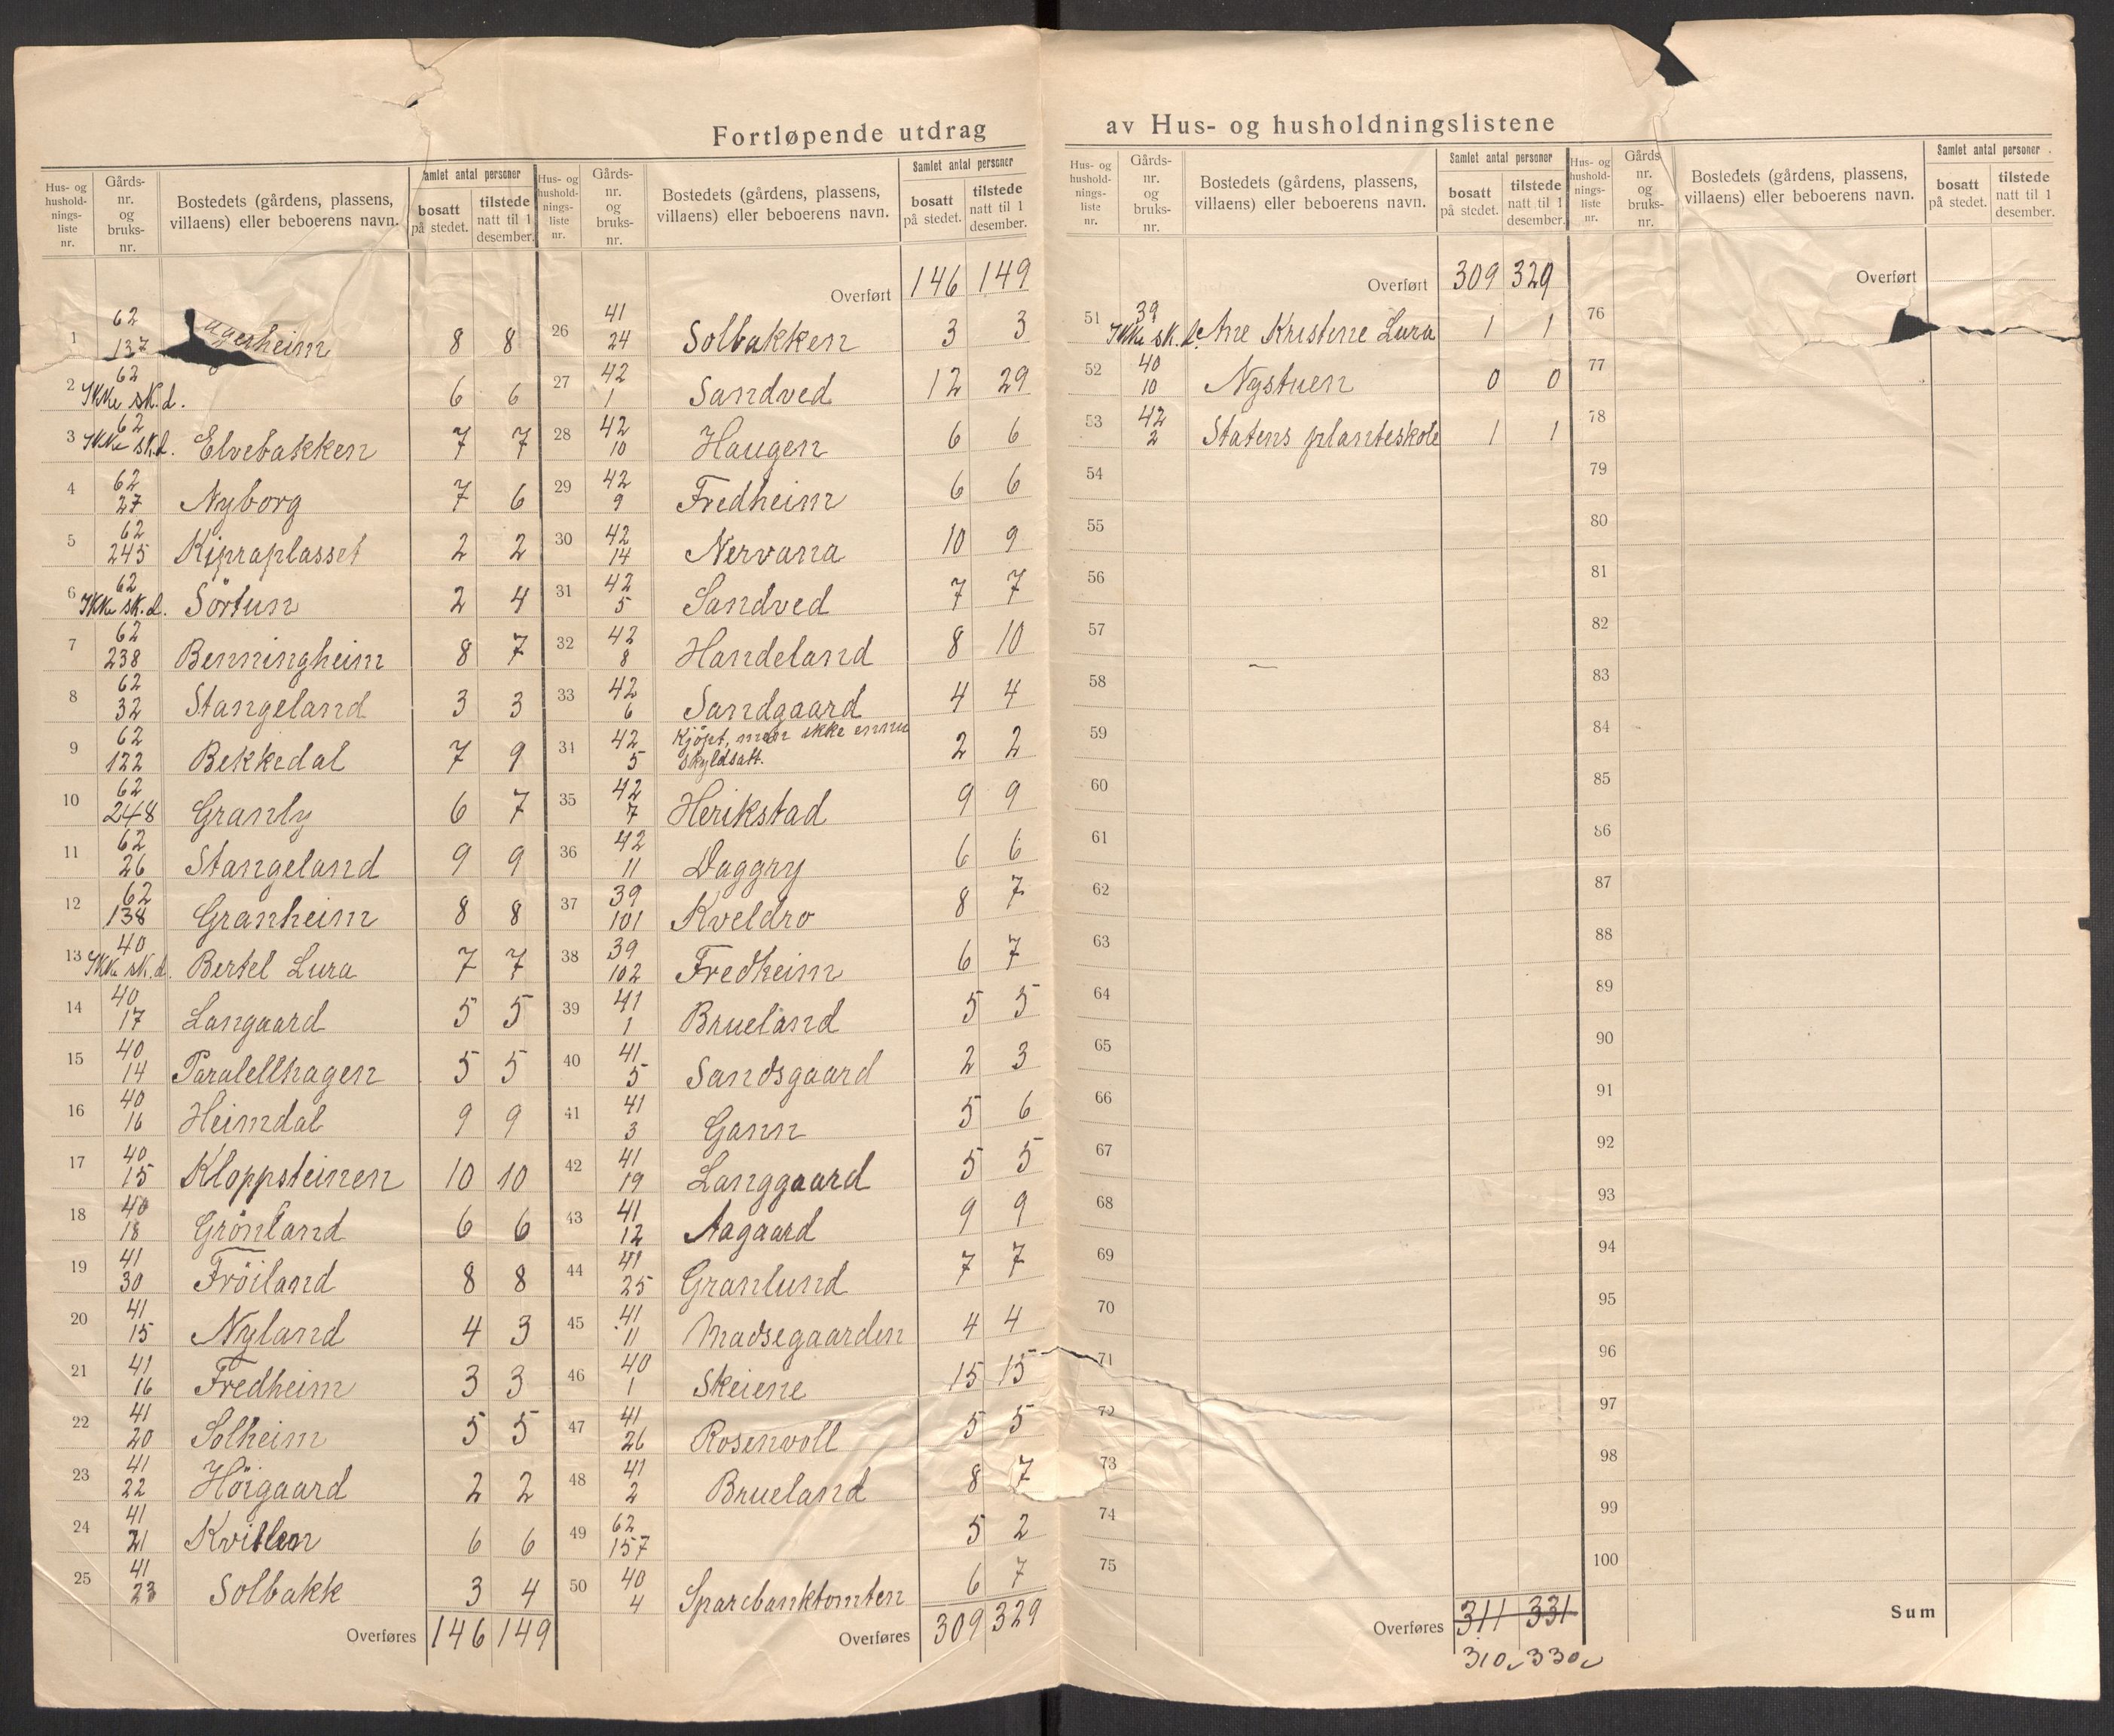 Fortløpende utdrag av Hus- og husholdningslistene
Hus- og hushold-nings-liste nr. Gårds-nr. og bruks-nr. Bostedets (gårdens, plassens, villaens) eller beboerens navn. amlet antal personer bosatt på stedet. tilstede natt til 1 desember.
1 62 137 agerheim 8 8
2 62 Ikke sk.d. 6 6
3 62 Ikke sk.d. Elvebakken 7 7
4 62 27 Nyborg 7 6
5 62 245 Kipraplasset 2 2
6 62 Ikke sk.d. Sörtun 2 4
7 62 238 Benningheim 8 7
8 62 32 Stangeland 3 3
9 62 122 Bekkedal 7 9
10 62 248 Granly 6 7
11 62 26 Stangeland 9 9
12 62 138 Granheim 8 8
13 40 Ikke sk.d. Bertel Lura 7 7
14 40 17 Langaard 5 5
15 40 14 Paralellhagen 5 5
16 40 16 Heimdal 9 9
17 40 15 Kloppsteinen 10 10
18 40 18 Grönland 6 6
19 41 30 Fröiland 8 8
20 41 15 Nyland 4 3
21 41 16 Fredheim 3 3
22 41 20 Solheim 5 5
23 41 22 Höigaard 2 2
24 41 21 6 6
25 41 23 Solbakk 3 4
Overføres 146 149
Hus- og hushold-nings-liste nr. Gårds-nr. og bruks-nr. Bostedets (gårdens, plassens, villaens) eller beboerens navn. Samlet antal personer bosatt på stedet. tilstede natt til 1 desember.
Overført 146 149
26 41 24 Solbakken 3 3
27 42 1 Sandved 12 29
28 42 10 Haugen 6 6
29 42 9 Fredheim 6 6
30 42 14 Nervana 10 9
31 42 5 Sandved 7 7
32 42 8 Handeland 8 10
33 42 6 Sandgaard 4 4
34 42 5 Kjöpt, men ikke ennu skyldsatt. 2 2
35 42 7 Herikstad 9 9
36 42 11 Daggry 6 6
37 39 101 Kveldro 8 7
38 39 102 Fredheim 6 7
39 41 1 Brueland 5 5
40 41 5 Sandsgaard 2 3
41 41 3 Gann 5 6
42 41 19 Langgaard 5 5
43 41 12 Aagaard 9 9
44 41 25 Granlund 7 7
45 41 11 Madsegaarden 4 4
46 40 1 Skeiene 15 15
47 41 26 Rosenvoll 5 5
48 41 2 Brueland 8 7
49 62 157 5 2
50 40 4 Sparebanktomten 6 7
Overføres 309 329
Hus- og hushold-nings-liste nr. Gårds-nr. og bruks-nr. Bostedets (gårdens, plassens, villaens) eller beboerens navn. Samlet antal personer bosatt på stedet. tilstede natt til 1 desember.
Overført 309 329
51 39 Ikke sk.d. Ane Kristine Lura 1 1
52 40 10 Nystuen 0 0
53 42 2 Statens planteskole 1 1
54
55
56
57
58
59
60
61
62
63
64
65
66
67
68
69
70
71
72
73
74
75
Overføres 311 331
310 330
Hus- og hushold-nings-liste nr. Gårds nr. og bruks-nr. Bostedets (gårdens, plassens, villaens) eller beboerens navn. Samlet antal personer bosatt på stedet. tilstede natt til 1 desember.
Overført
76
77
78
79
80
81
82
83
84
85
86
87
88
89
90
91
92
93
94
95
96
97
98
99
100
Sum